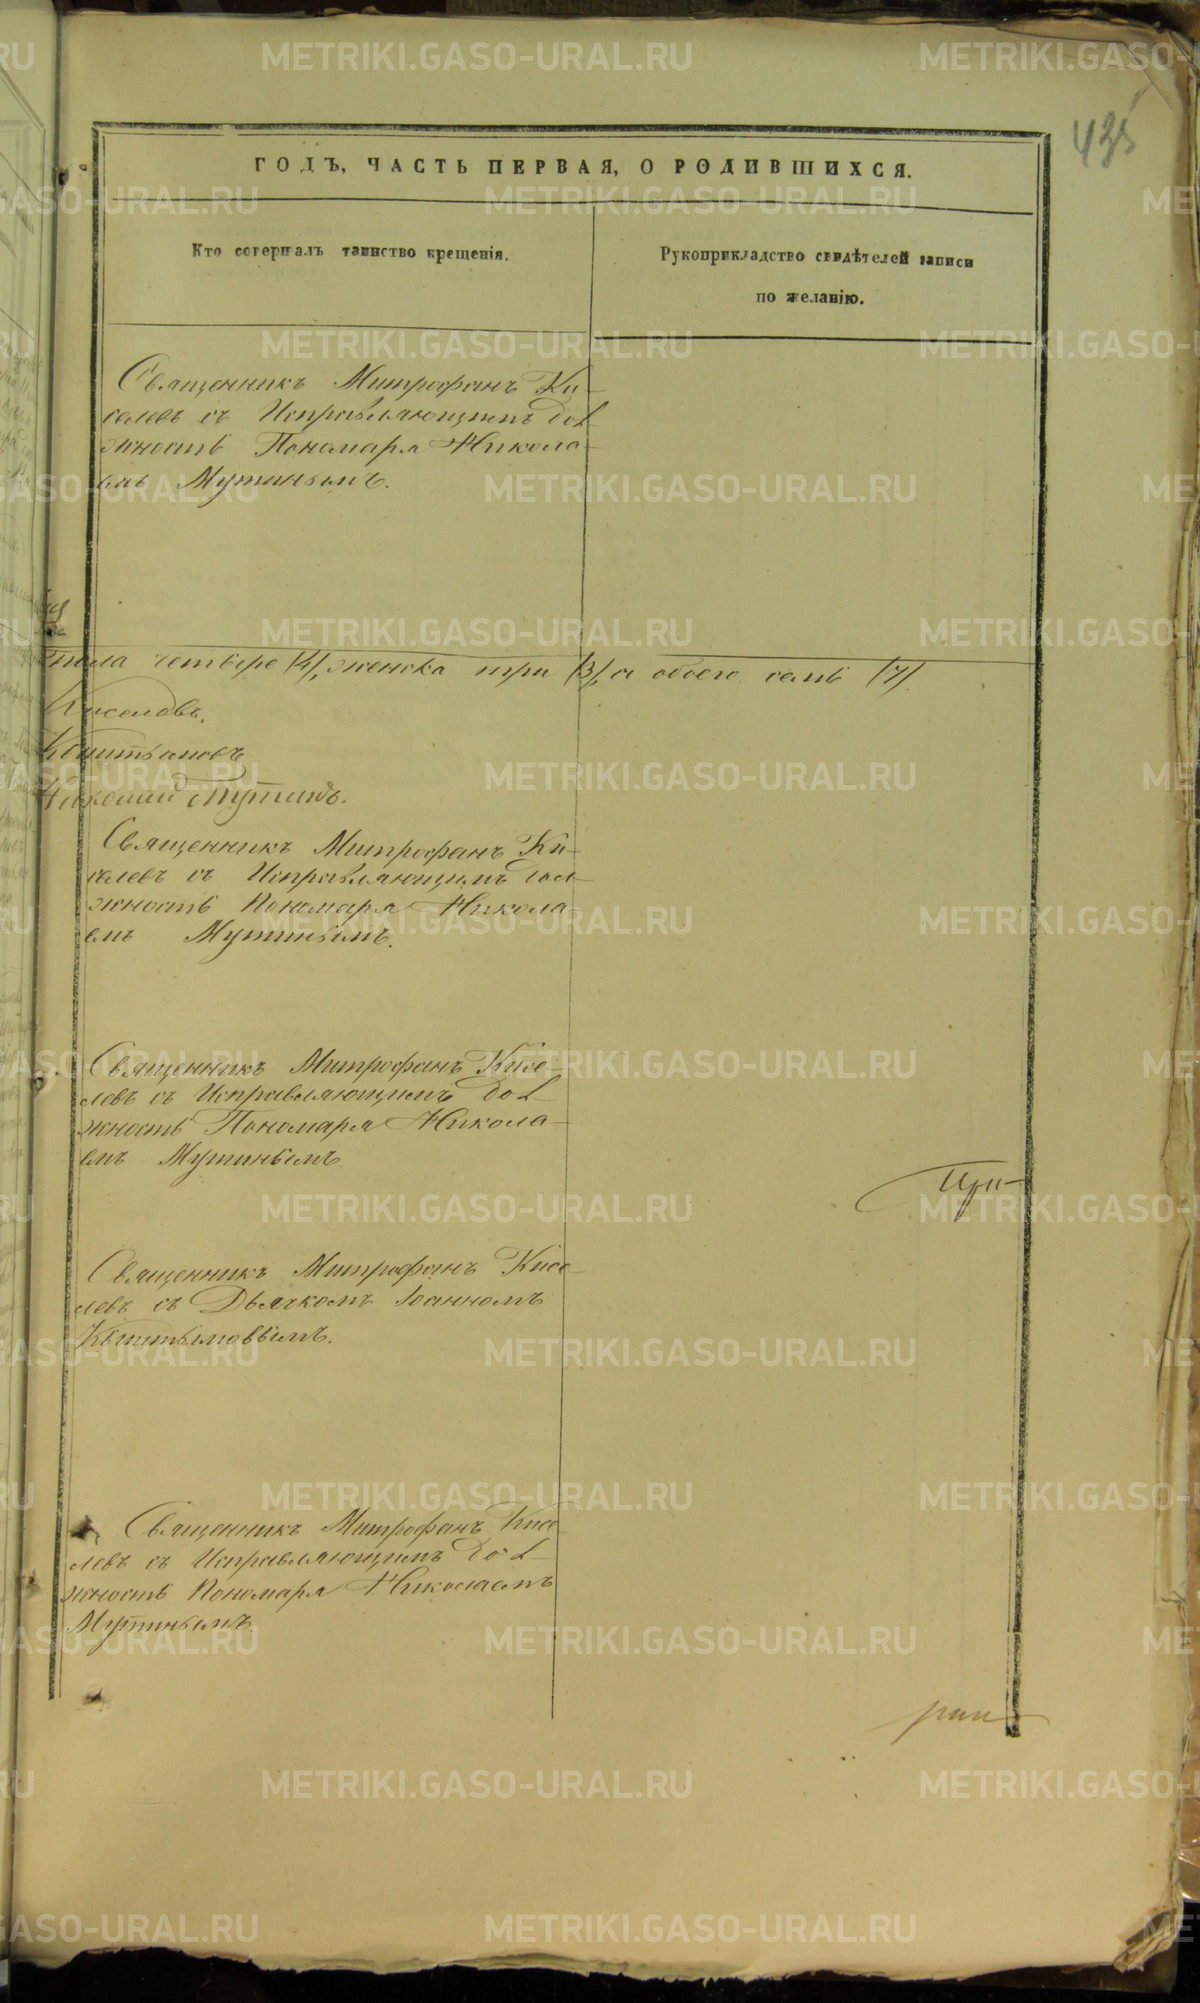 435
ГОДЪ, ЧАСТЬ ПЕРВАЯ, О РОДИВШИХСЯ.
Кто совершалъ таинство крещенія.
Рукоприкладство свидѣтелей записи
по желанію.
Священникъ Митрофанъ Ки-
селевъ съ Исправляющимъ дол
жность Пономаря Никола-
емъ Мутинымъ.
пола четверо /4/, женска три /3/, а обоего семь /7/.
Киселевъ.
Кыштымовъ
Николай Мутинъ.
Священникъ Митрофанъ Ки-
селевъ съ Исправляющимъ дол-
жность Пономаря Никола-
емъ Мутинымъ.
Священникъ Митрофанъ Кисе-
левъ съ Исправляющимъ дол-
жность Пономаря Никола-
емъ Мутинымъ.
При-
Священникъ Митрофанъ Кисе-
левъ съ Дьячкомъ Іоанномъ
Кыштымовымъ.
Священникъ Митрофанъ Кисе-
левъ съ Исправляющимъ дол-
жность Пономаря Николаемъ
Мутинымъ.
METRIKI.GASO-URAL.RU